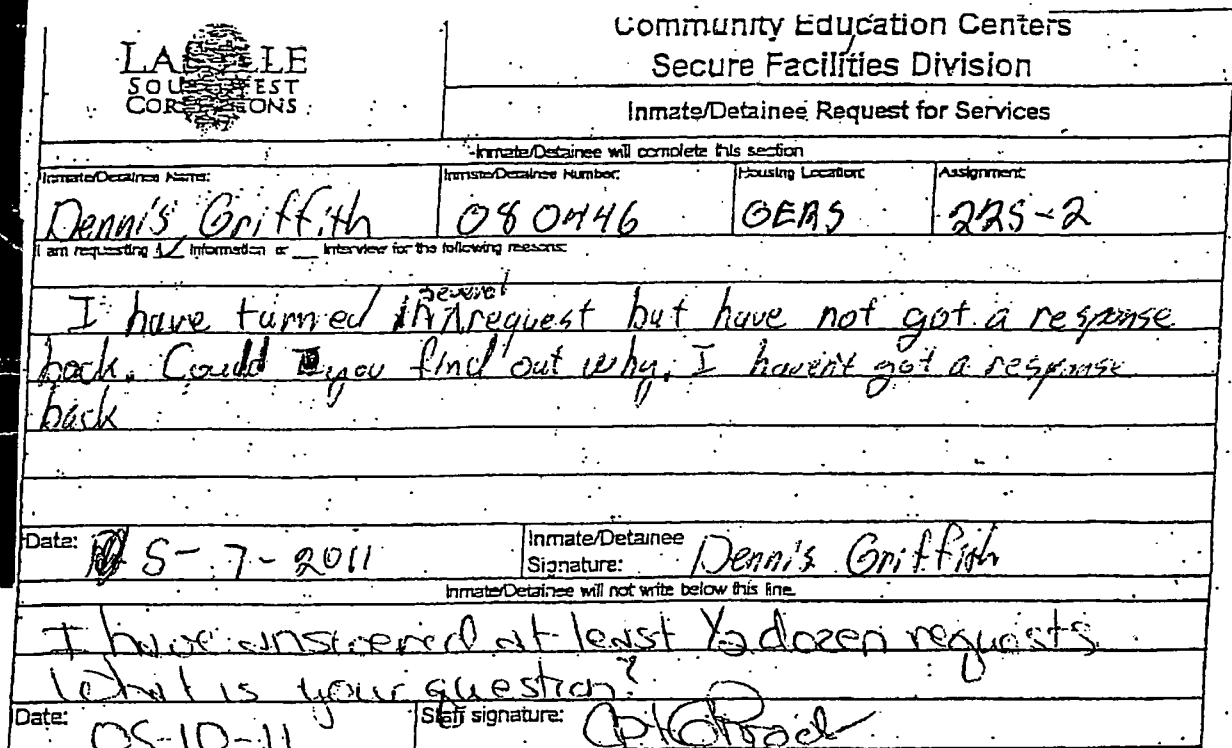 Community Education Centers
Secure Facilities Division
Inmate/Detainee Request for Services
Inmate/Detainee will complete this section
Inmate/Detainee Name:
Inmate/Detainee Number:
Housing Location:
Assignment:
Dennis Griffith
I am requesting ✓ Information or __ Interview for the following reasons:
I have turned in several request but have not got a response
back. Could you find out why, I haven't got a response
back
Date: 5-7-2011
Inmate/Detainee
Signature: Dennis Griffith
Inmate/Detainee will not write below this line.
I have answered at least 1/2 dozen requests.
What is your question?
Date: 05-10-11
Staff signature: